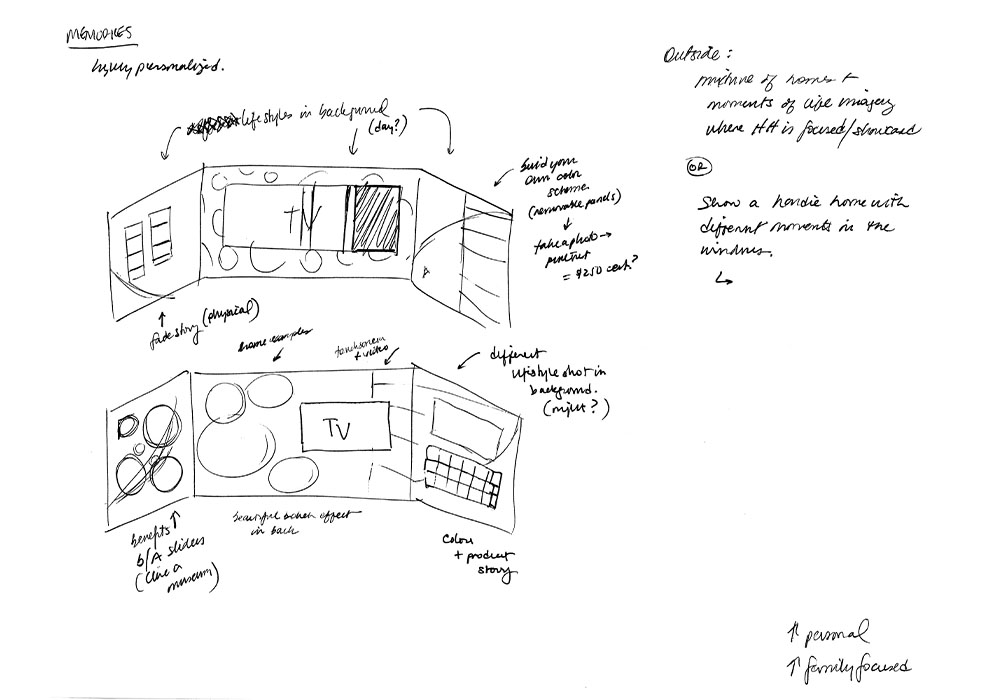 MEMORIES
highly personalized.
lifestyles in background
(day?)
Outside:
mixture of homes +
moments of life imagery
where HH is focused/showcased
OR
Show a hardie home with
different moments in the
windows.
build your
own color
scheme
(removable panels)
take a photo →
pinterest
= $250 card?
TV
fade story (physical)
home examples
touchscreen
+ video
different
lifestyle shot in
background.
(night?)
TV
benefits
b/A sliders
(like a
museum)
beautiful bokeh effect
in back
Colour
+ product
story
↑ personal
↑ family focused